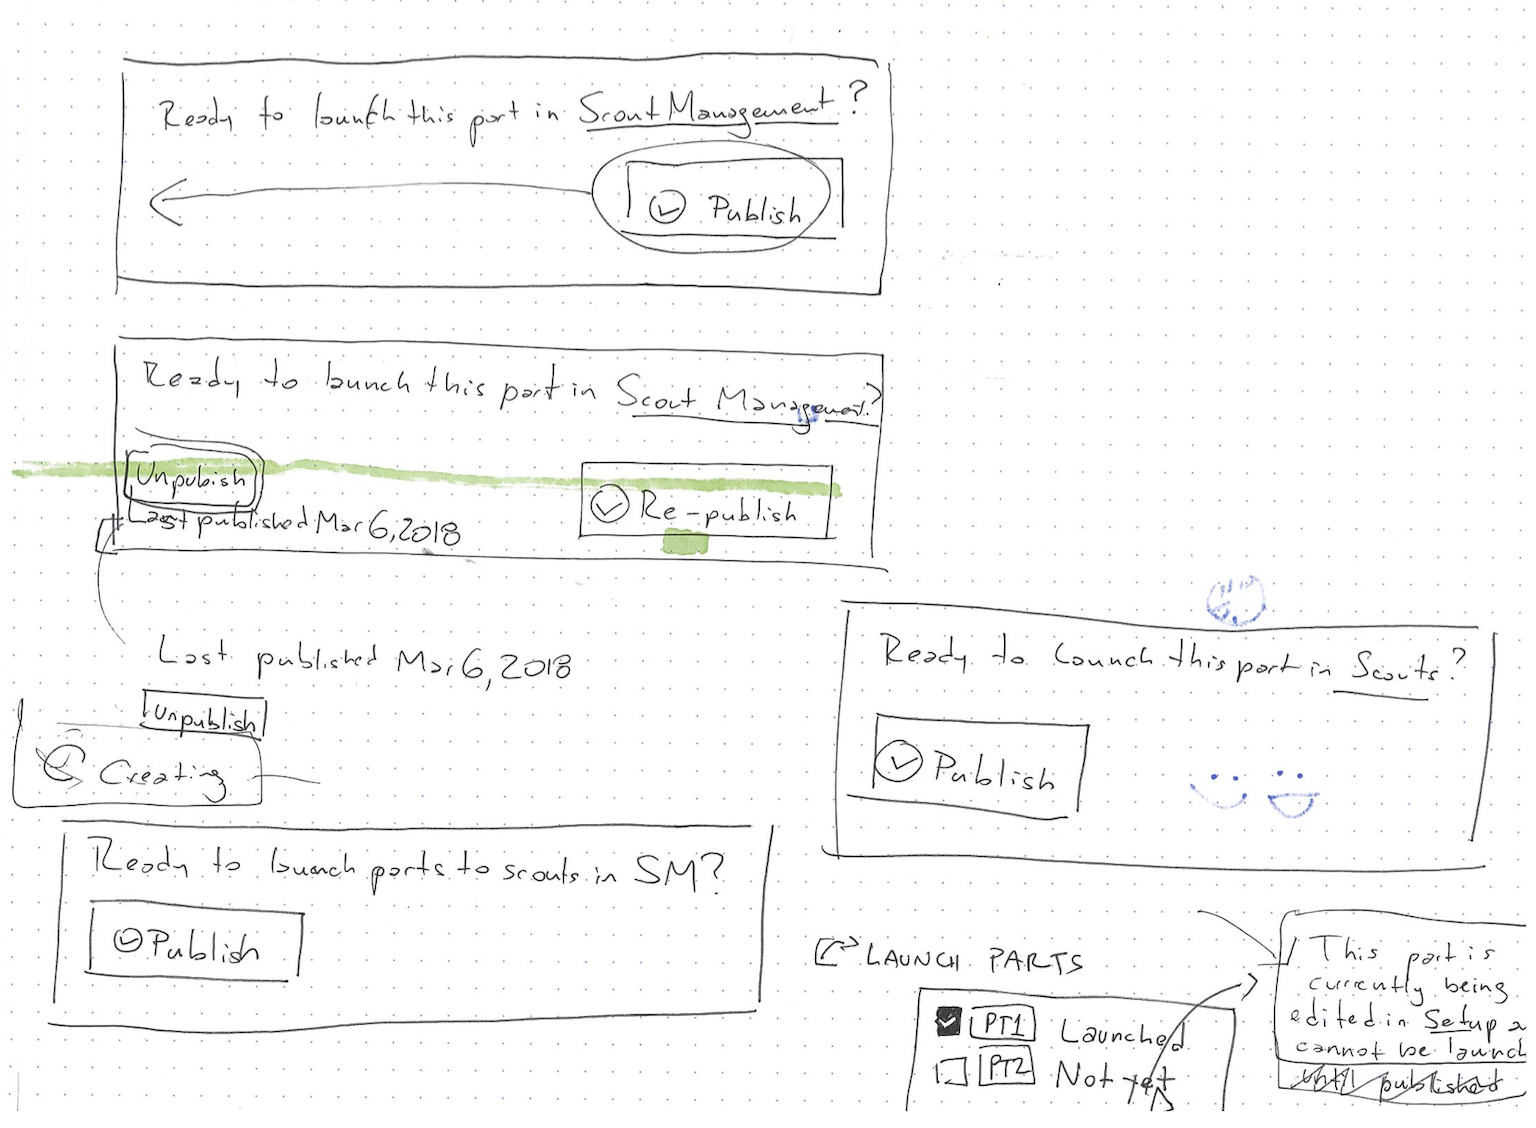 Ready to launch this part in Scout Management?
Publish
Ready to launch this part in Scout Management?
Unpubish
Re-publish
Last published Mar 6, 2018
Last published Mar 6, 2018
Unpublish
Creating
Ready to launch this part in Scouts?
Publish
Ready to launch parts to scouts in SM?
Publish
LAUNCH PARTS
PT1 Launched
PT2 Not yet
This part is
currently being
edited in Setup
cannot be launch
until published